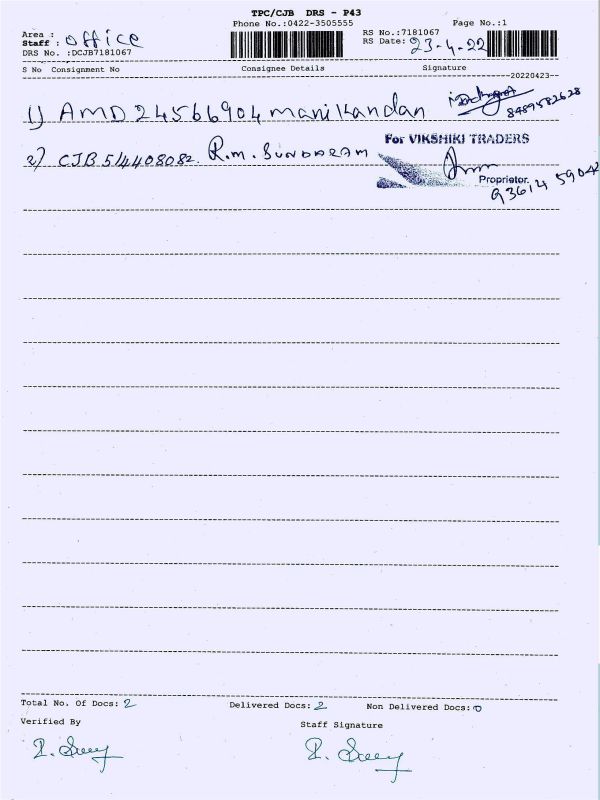 TPC/CJB DRS - P43
Phone No.:0422-3505555
Page No.:1
Area :
Staff : Office
DRS No. :DCJB7181067
RS No.:7181067
RS Date: 23-4-22
S No Consignment No Consignee Details Signature
20220423
1) AMD 24566904 Manikandan
8489582628
2) CJB 514408082. R.M. SUNDARAM
For VIKSHIKI TRADERS
Proprietor.
93614 59042
Total No. Of Docs: 2 Delivered Docs: 2 Non Delivered Docs: 0
Verified By Staff Signature